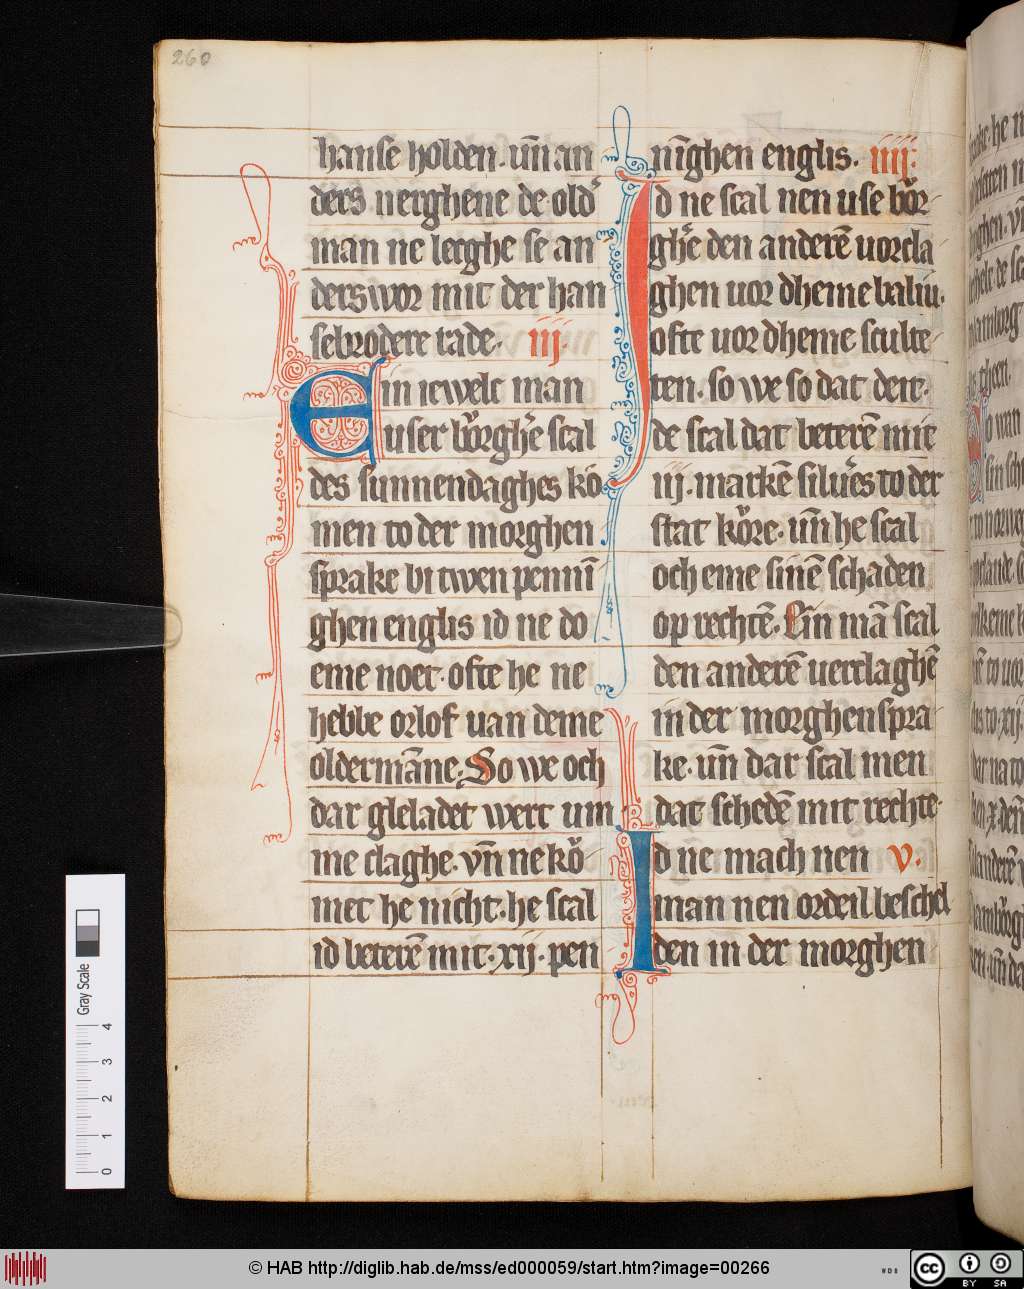 260
hanse holden. un̄ an
ders nerghene de old᷑
man ne legghe se an
derswor mit der han
sebrodere rade. iij.
Ein iewelc man
user bo᷑rgh᷑e scal
des sunnendaghes ko
men to der morghen
sprake bi twen penni̅
ghen englis id ne do
eme noet. ofte he ne
hebbe orlof van deme
olderma̅ne. So we och
dar gheladet wert um
me claghe. vn̄ ne ko᷑
met he nicht. he scal
id betere̅ mit. xij. pen
ni̅ghen englis. iiij.
Id ne scal nen use bo᷑r
gh᷑e den andere̅ uorcla
ghen uor dheme baliu.
ofte uor dheme sculte
ten. so we so dat deit.
de scal dat betere̅ mit
iij. marke̅ silu᷑es to der
stat ko᷑re. un̄ he scal
och eme sine̅ schaden
op rechte̅. Ein ma̅ scal
den andere̅ uerclaghe̅
in der morghenspra
ke. un̄ dar scal men
dat schede̅ mit rechte.
Id ne mach nen v.
man nen ordeil beschel
den in der morghen
Gray Scale
0 1 2 3 4
© HAB http://diglib.hab.de/mss/ed000059/start.htm?image=00266
WDB
cc BY SA